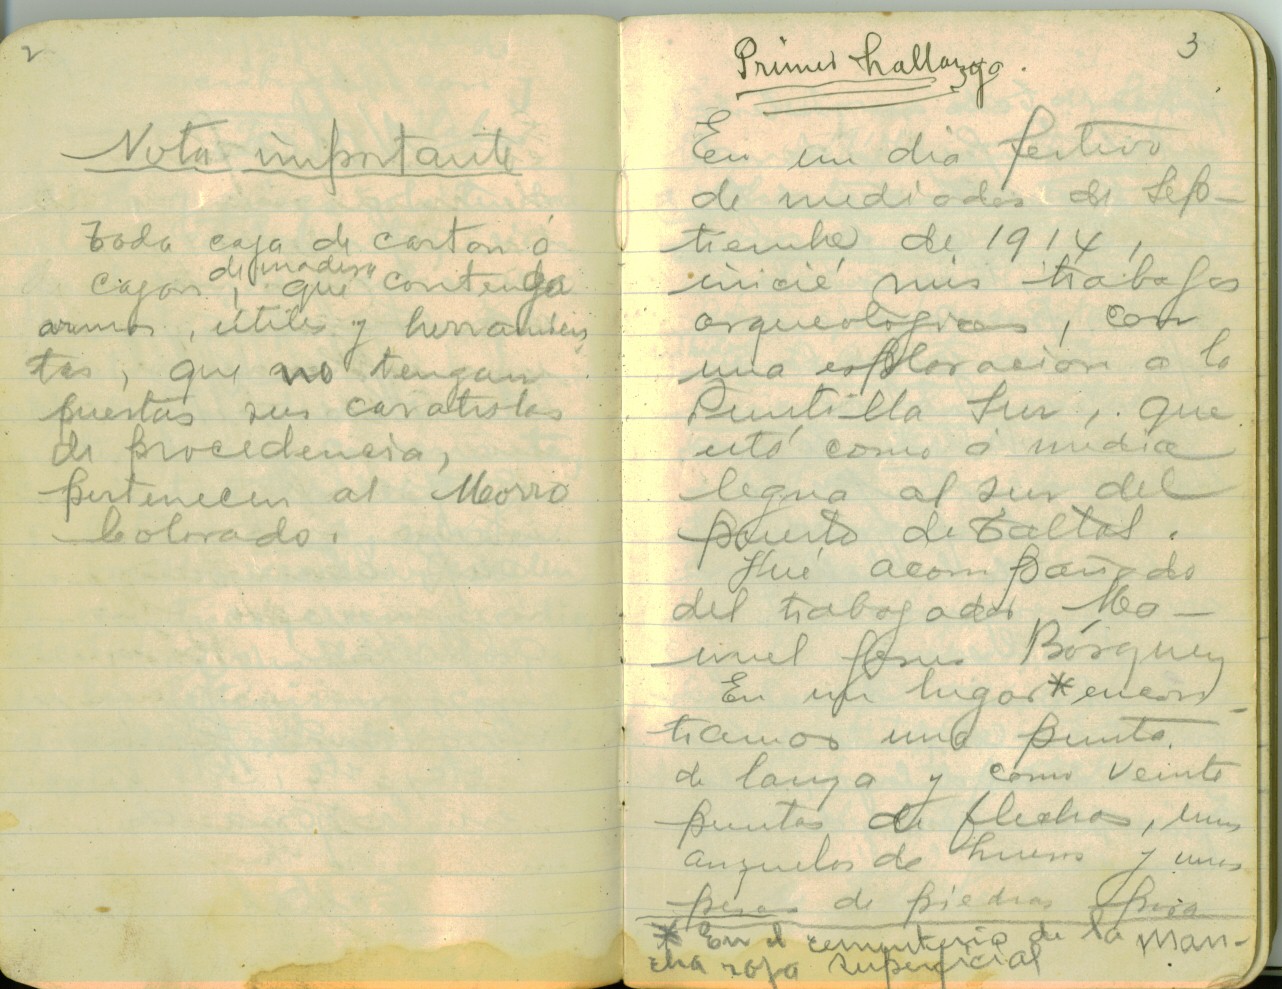 2
Nota importante
Toda caja de carton ó
cajas de madera, que contenga
armas, útiles y herramien
tas, que no tengan
puestas sus caratulas
de procedencia,
pertenecen al Morro
Colorado.
3
Primer hallazgo.
En un dia festivo
de mediados de Sep-
tiembre de 1914,
inicié mis trabajos
arqueológicos, con
una exploración a la
Puntilla Sur, que
está como á media
legua al sur del
puerto de Taltal.
Fué acompañado
del trabajador Ma-
nuel Jesus Bórquez
En un lugar * encon-
tramos una punta
de lanza y como veinte
puntas de flechas, unos
anzuelos de hueso y unas
pesas de piedras para
* En el cementerio de la man-
cha roja superficial